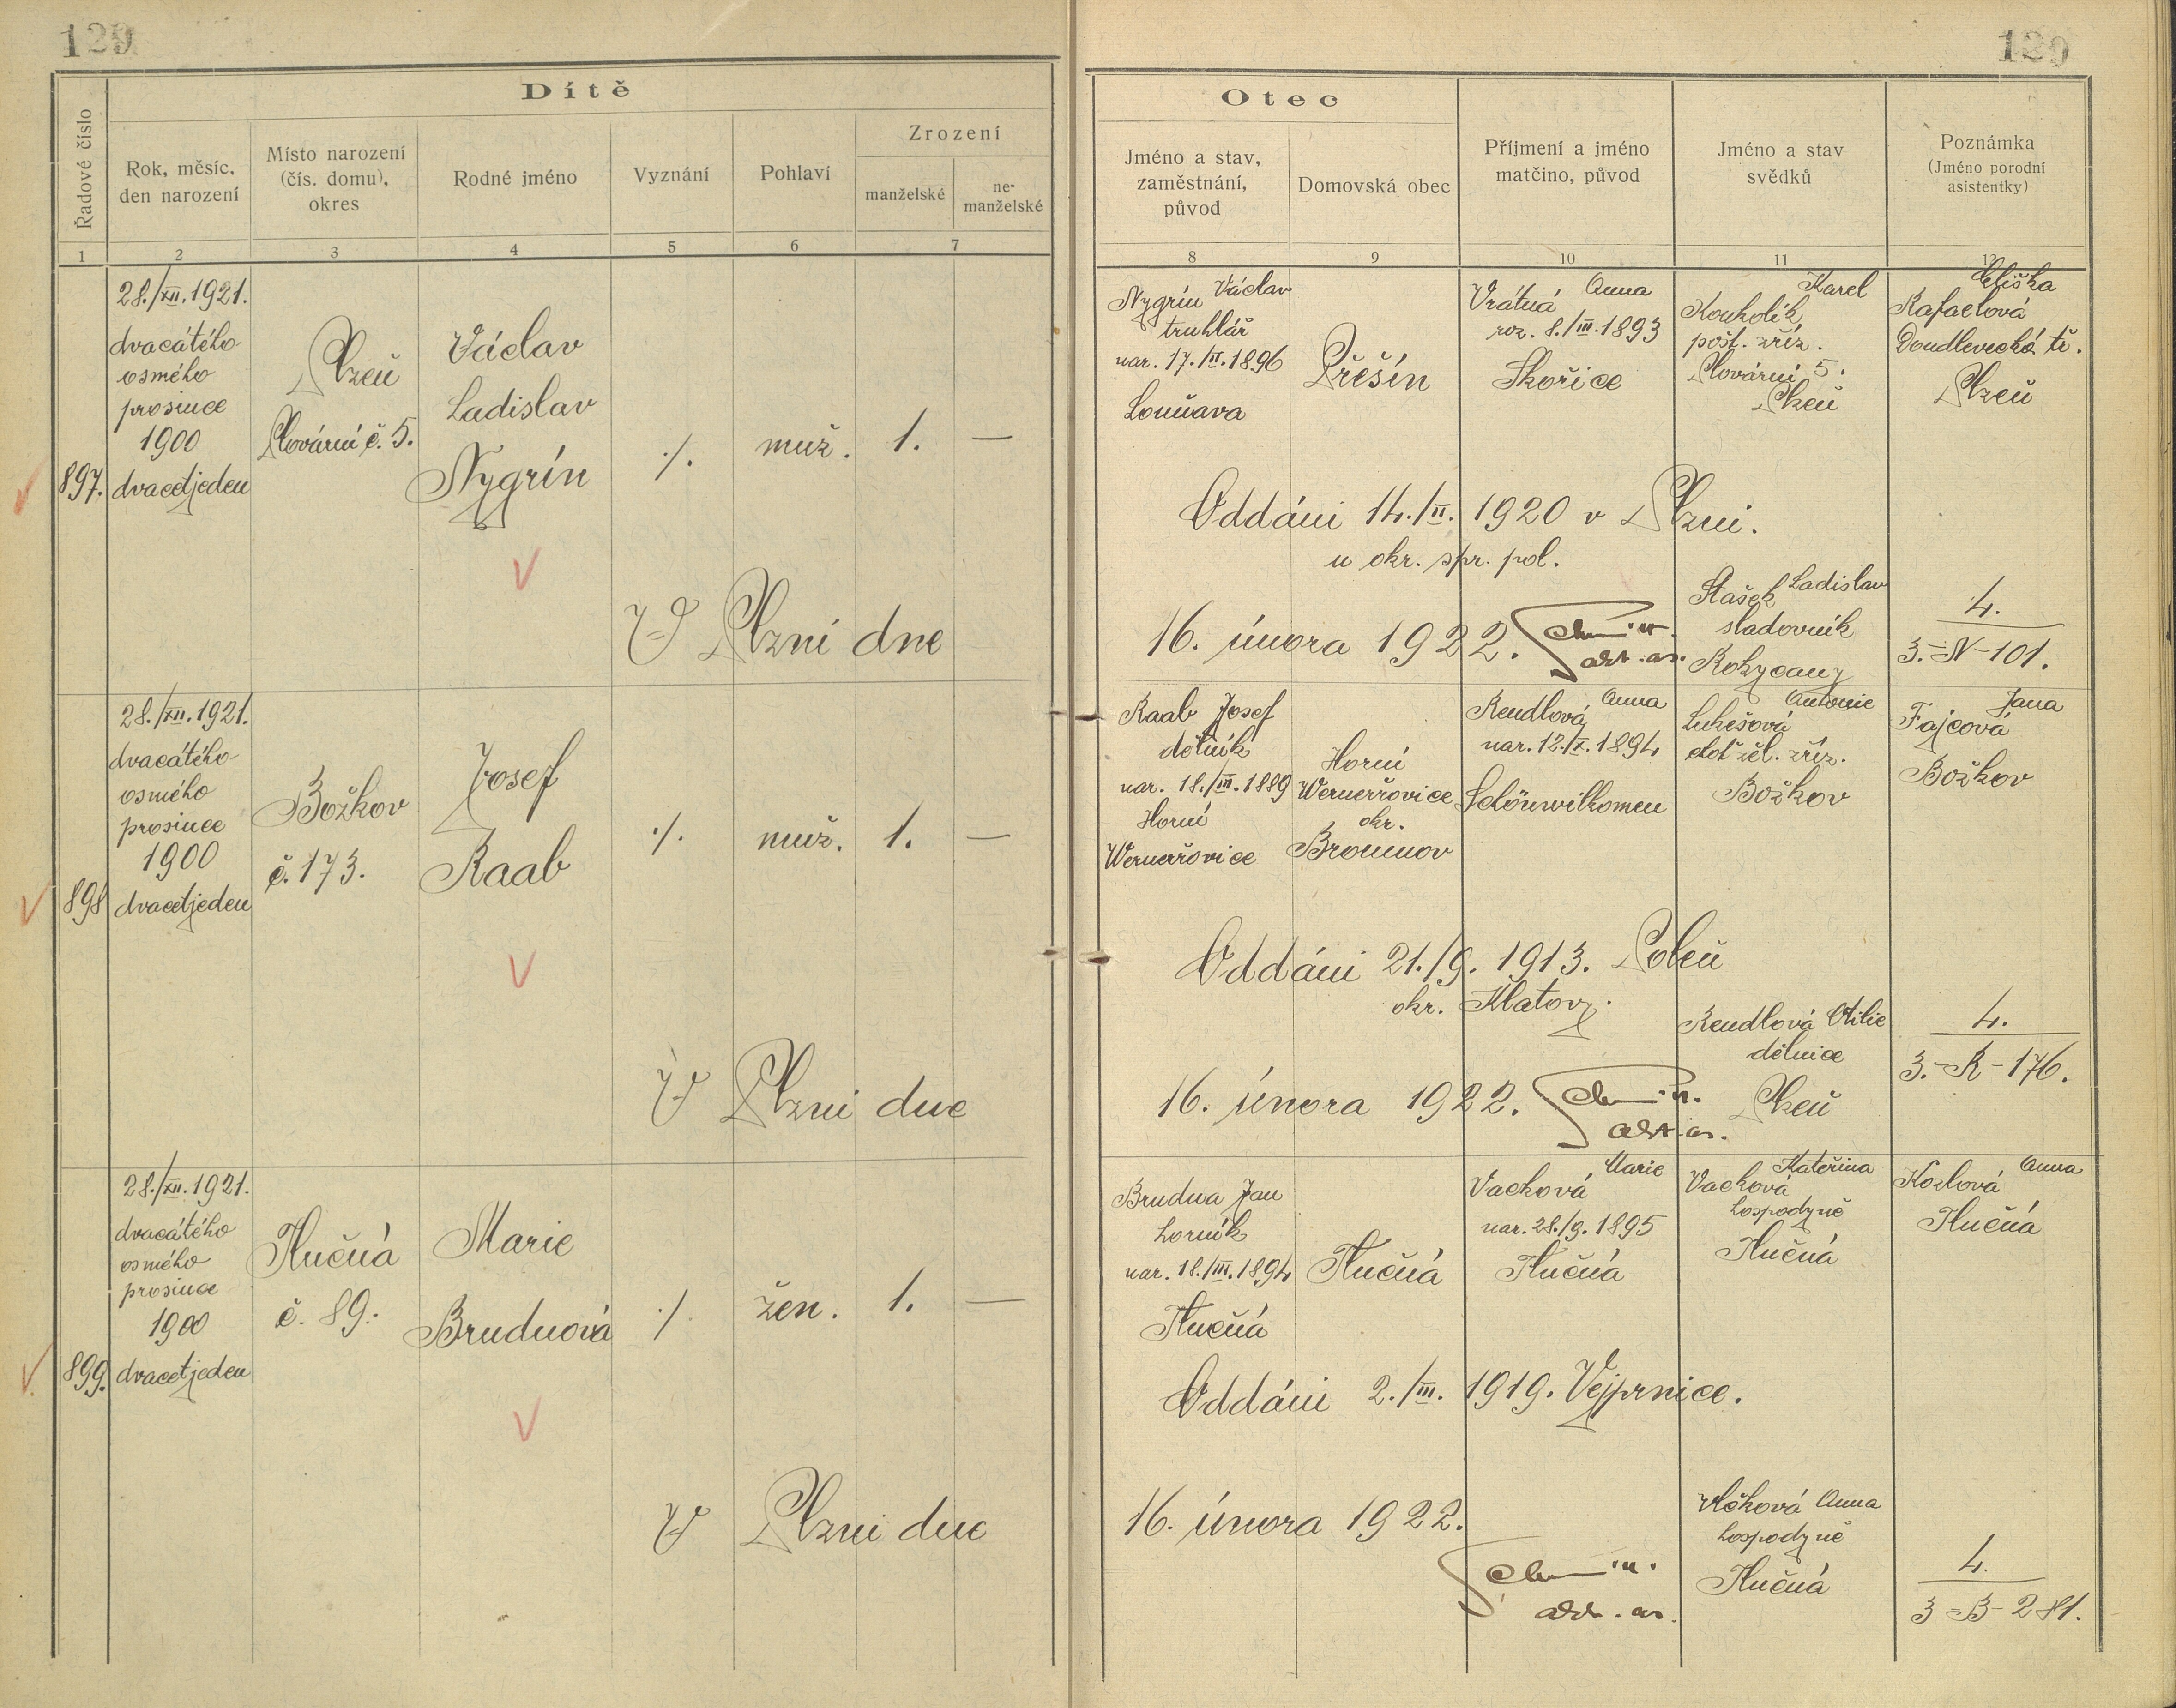 129
129
Dítě
Řadové číslo
Rok, měsíc,
den narození
Místo narození
(čís. domu),
okres
Rodné jméno
Vyznání
Pohlaví
Zrození
manželské
ne-
manželské
1
2
3
4
5
6
7
Otec
Jméno a stav,
zaměstnání,
původ
Domovská obec
Příjmení a jméno
matčino, původ
Jméno a stav
svědků
Poznámka
(Jméno porodní
asistentky)
8
9
10
11
12
897.
28./XII.1921.
dvacátého
osmého
prosince
1900
dvacetjeden
Plzeň
Plovární č. 5.
Václav
Ladislav
Nygrín
·/.
muž.
1.
—
V Plzni dne
Nygrín Václav
truhlář
nar. 17./II.1896
Lomňava
Přešín
Vrátná Anna
roz. 8./III.1893
Skořice
Karel
Kouholík
pošt. zříz.
Plovární 5.
Plzeň
Eliška
Rafaelová
Doudlevecká tř.
Plzeň
Oddáni 14./II. 1920 v Plzni.
u okr. spr. pol.
16. února 1922.
Stašek Ladislav
sladovník
Rokycany
4.
3.-N-101.
898
28./XII.1921.
dvacátého
osmého
prosince
1900
dvacetjeden
Božkov
č. 173.
Josef
Raab
·/.
muž.
1.
—
V Plzni dne
Raab Josef
dělník
nar. 18./III.1889
Horní
Werneřovice
Horní
Werneřovice
okr.
Broumov
Rendlová Anna
nar. 12./X.1894
Schönwilkomen
Antonie
Lukešová
choť žel. zříz.
Božkov
Jana
Fajcová
Božkov
Oddáni 21./9. 1913. Poleň
okr. Klatovy.
16. února 1922.
Rendlová Otilie
dělnice
Plzeň
4.
3.-R-176.
899.
28./XII.1921.
dvacátého
osmého
prosince
1900
dvacetjeden
Tlučná
č. 89.
Marie
Brudnová
·/.
žen.
1.
—
V Plzni dne
Brudna Jan
horník
nar. 18./III.1894
Tlučná
Tlučná
Vacková Marie
nar. 28./9. 1895
Tlučná
Kateřina
Vacková
hospodyně
Tlučná
Anna
Kozlová
Tlučná
Oddáni 2./III. 1919. Vejprnice.
16. února 1922.
Vlčková Anna
hospodyně
Tlučná
4.
3-B-281.